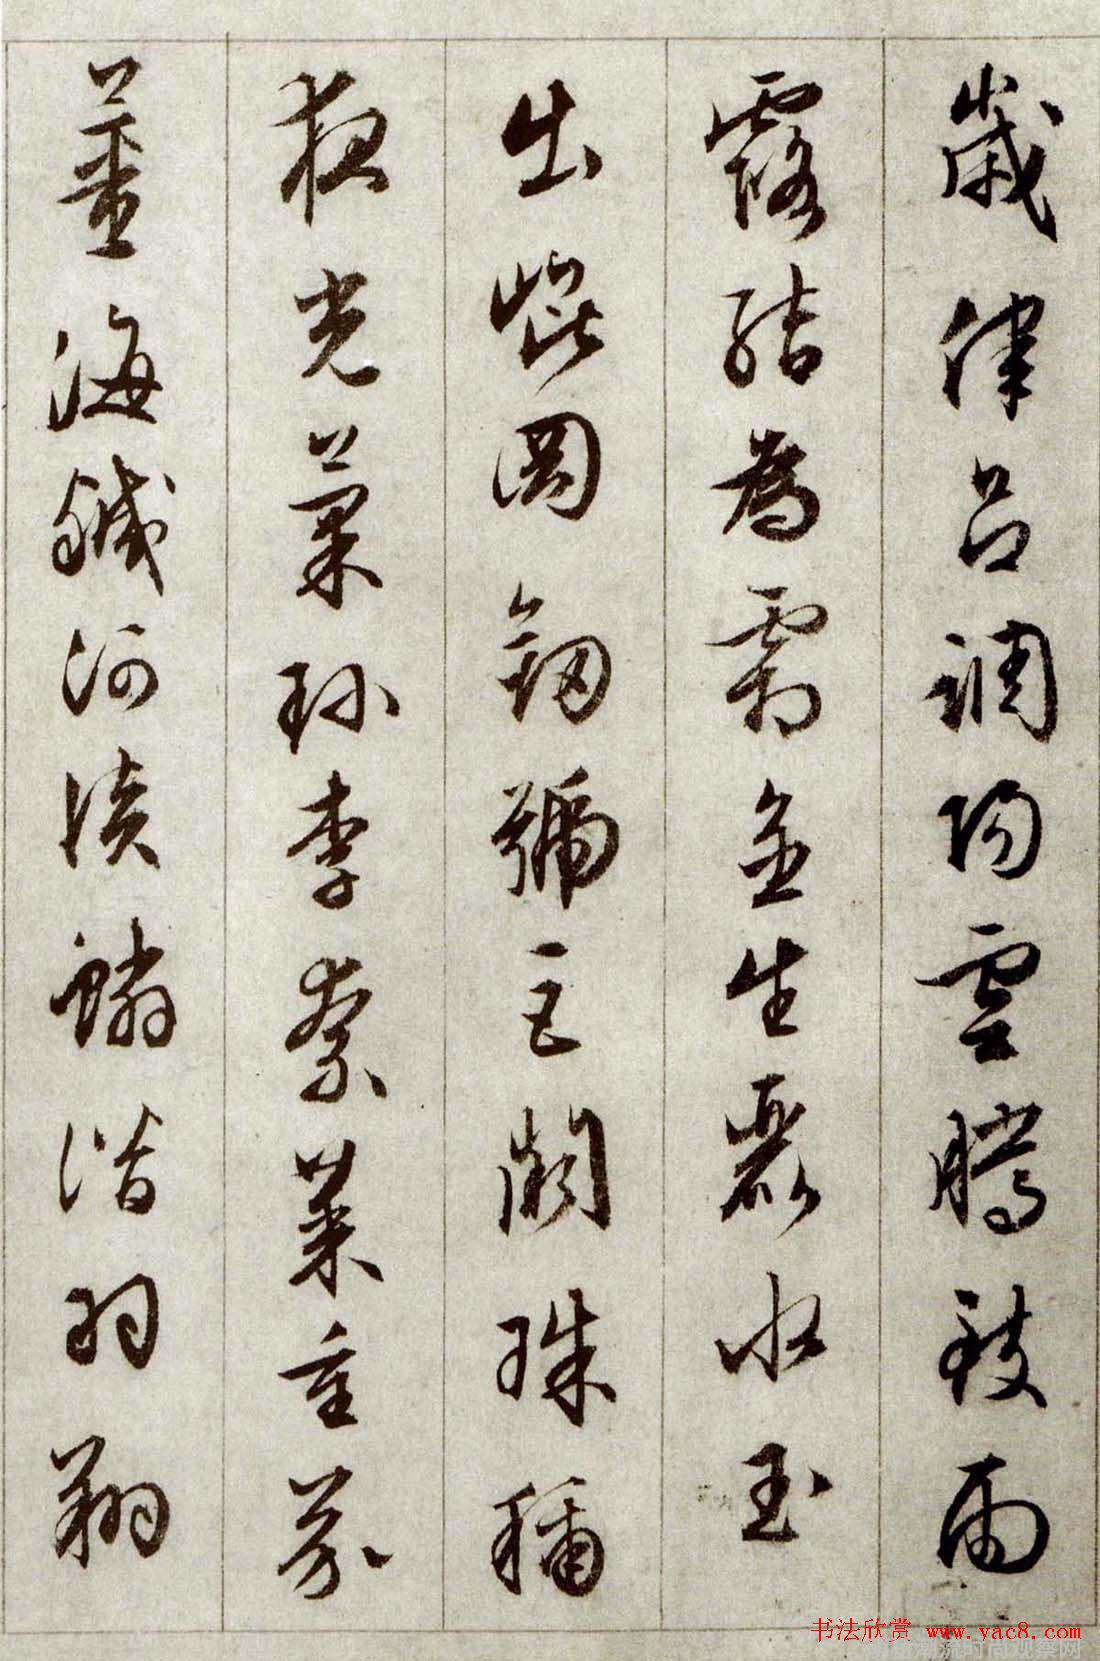 歲律呂調陽雲騰致雨
露結為霜金生麗水玉
出崐岡劒號巨闕珠稱
夜光菓珍李柰菜重芥
薑海鹹河淡鱗潛羽翔
书法欣赏 www.yac8.com
潮流时尚观察网